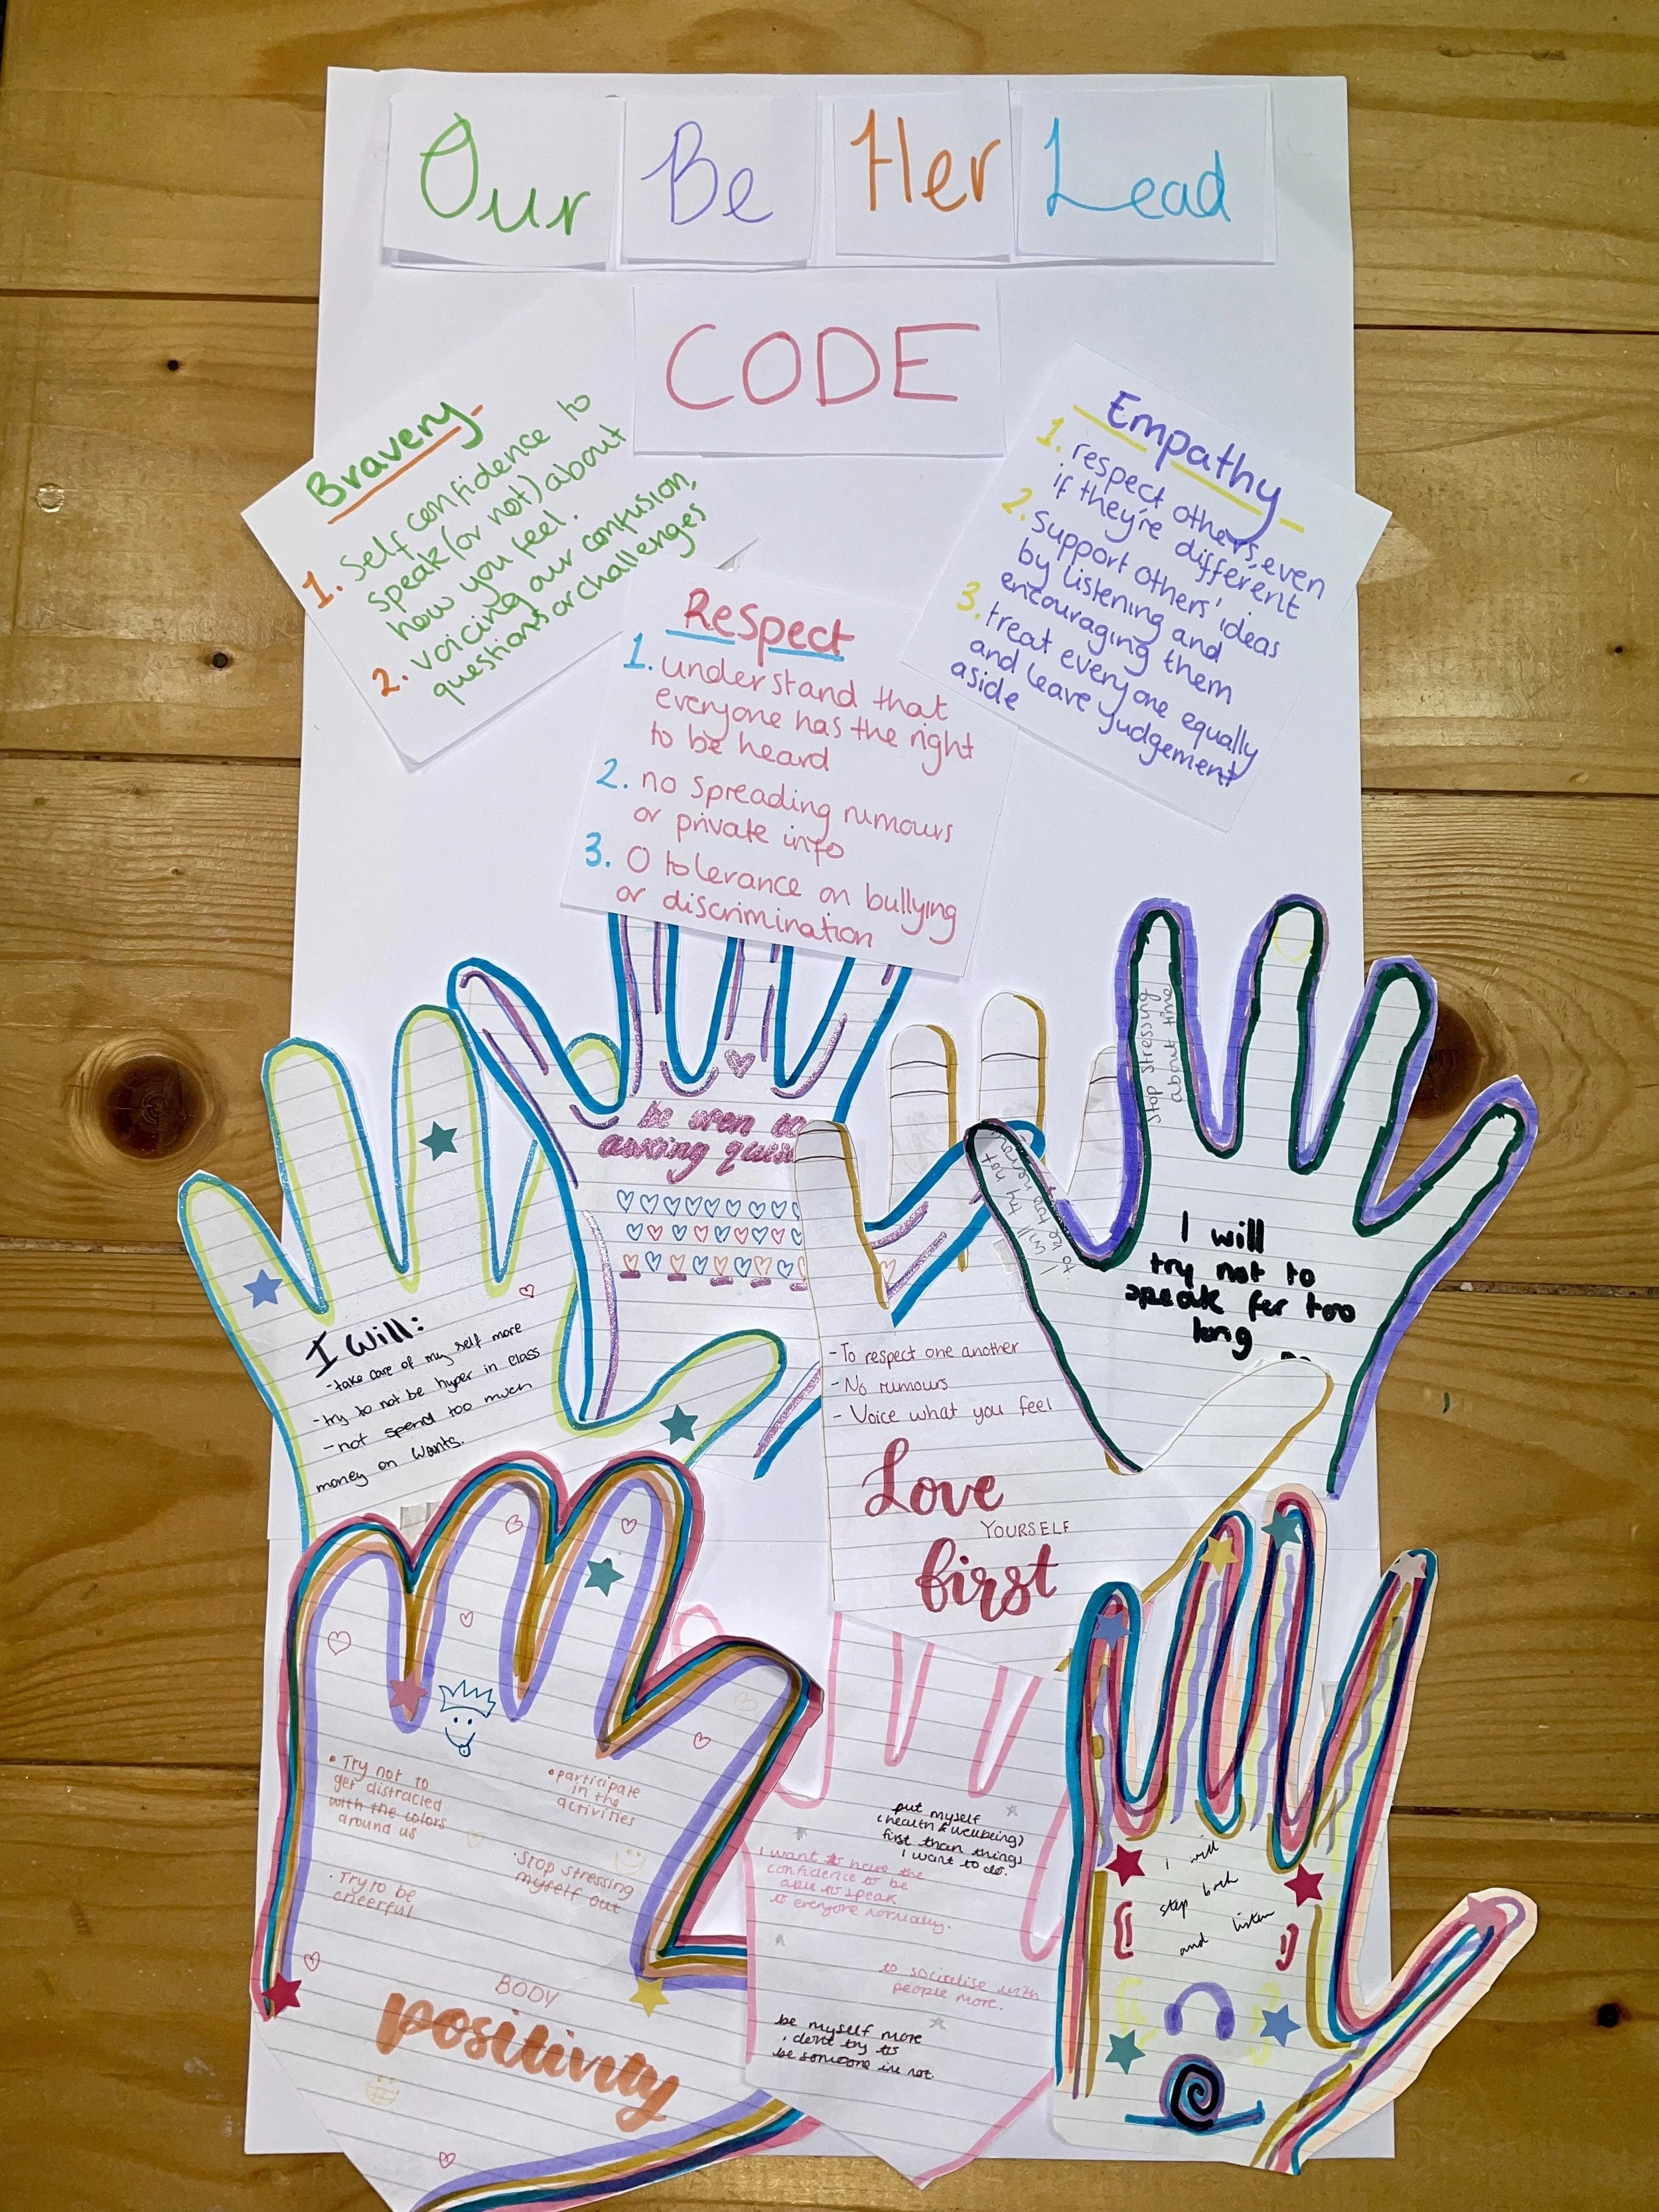 Our Be Her Lead
CODE
Bravery
1. Self confidence to
speak (or not) about
how you feel.
2. voicing our confusion,
questions or challenges
Empathy
1. respect others, even
if they're different
2. support others' ideas
by listening and
encouraging them
3. treat everyone equally
and leave judgement
aside
Respect
1. understand that
everyone has the right
to be heard
2. no spreading rumours
or private info
3. 0 tolerance on bullying
or discrimination
be open to
asking ques
Stop stressing
about time
I will try not
to be too nervous
I will
try not to
speak for too
long
I Will:
- take care of my self more
- try to not be hyper in class
- not spend too much
money on wants.
- To respect one another
- No rumours
- Voice what you feel
Love
YOURSELF
first
• Try not to
get distracted
with the colors
around us
• participate
in the
activities
• Try to be
cheerful
• Stop stressing
myself out
BODY
positivity
put myself
(health & wellbeing)
first than things
I want to do.
I want to have the
confidence to be
able to speak
to everyone normally.
to socialise with
people more.
be myself more
, dont try to
be someone im not.
I will
step back
and listen